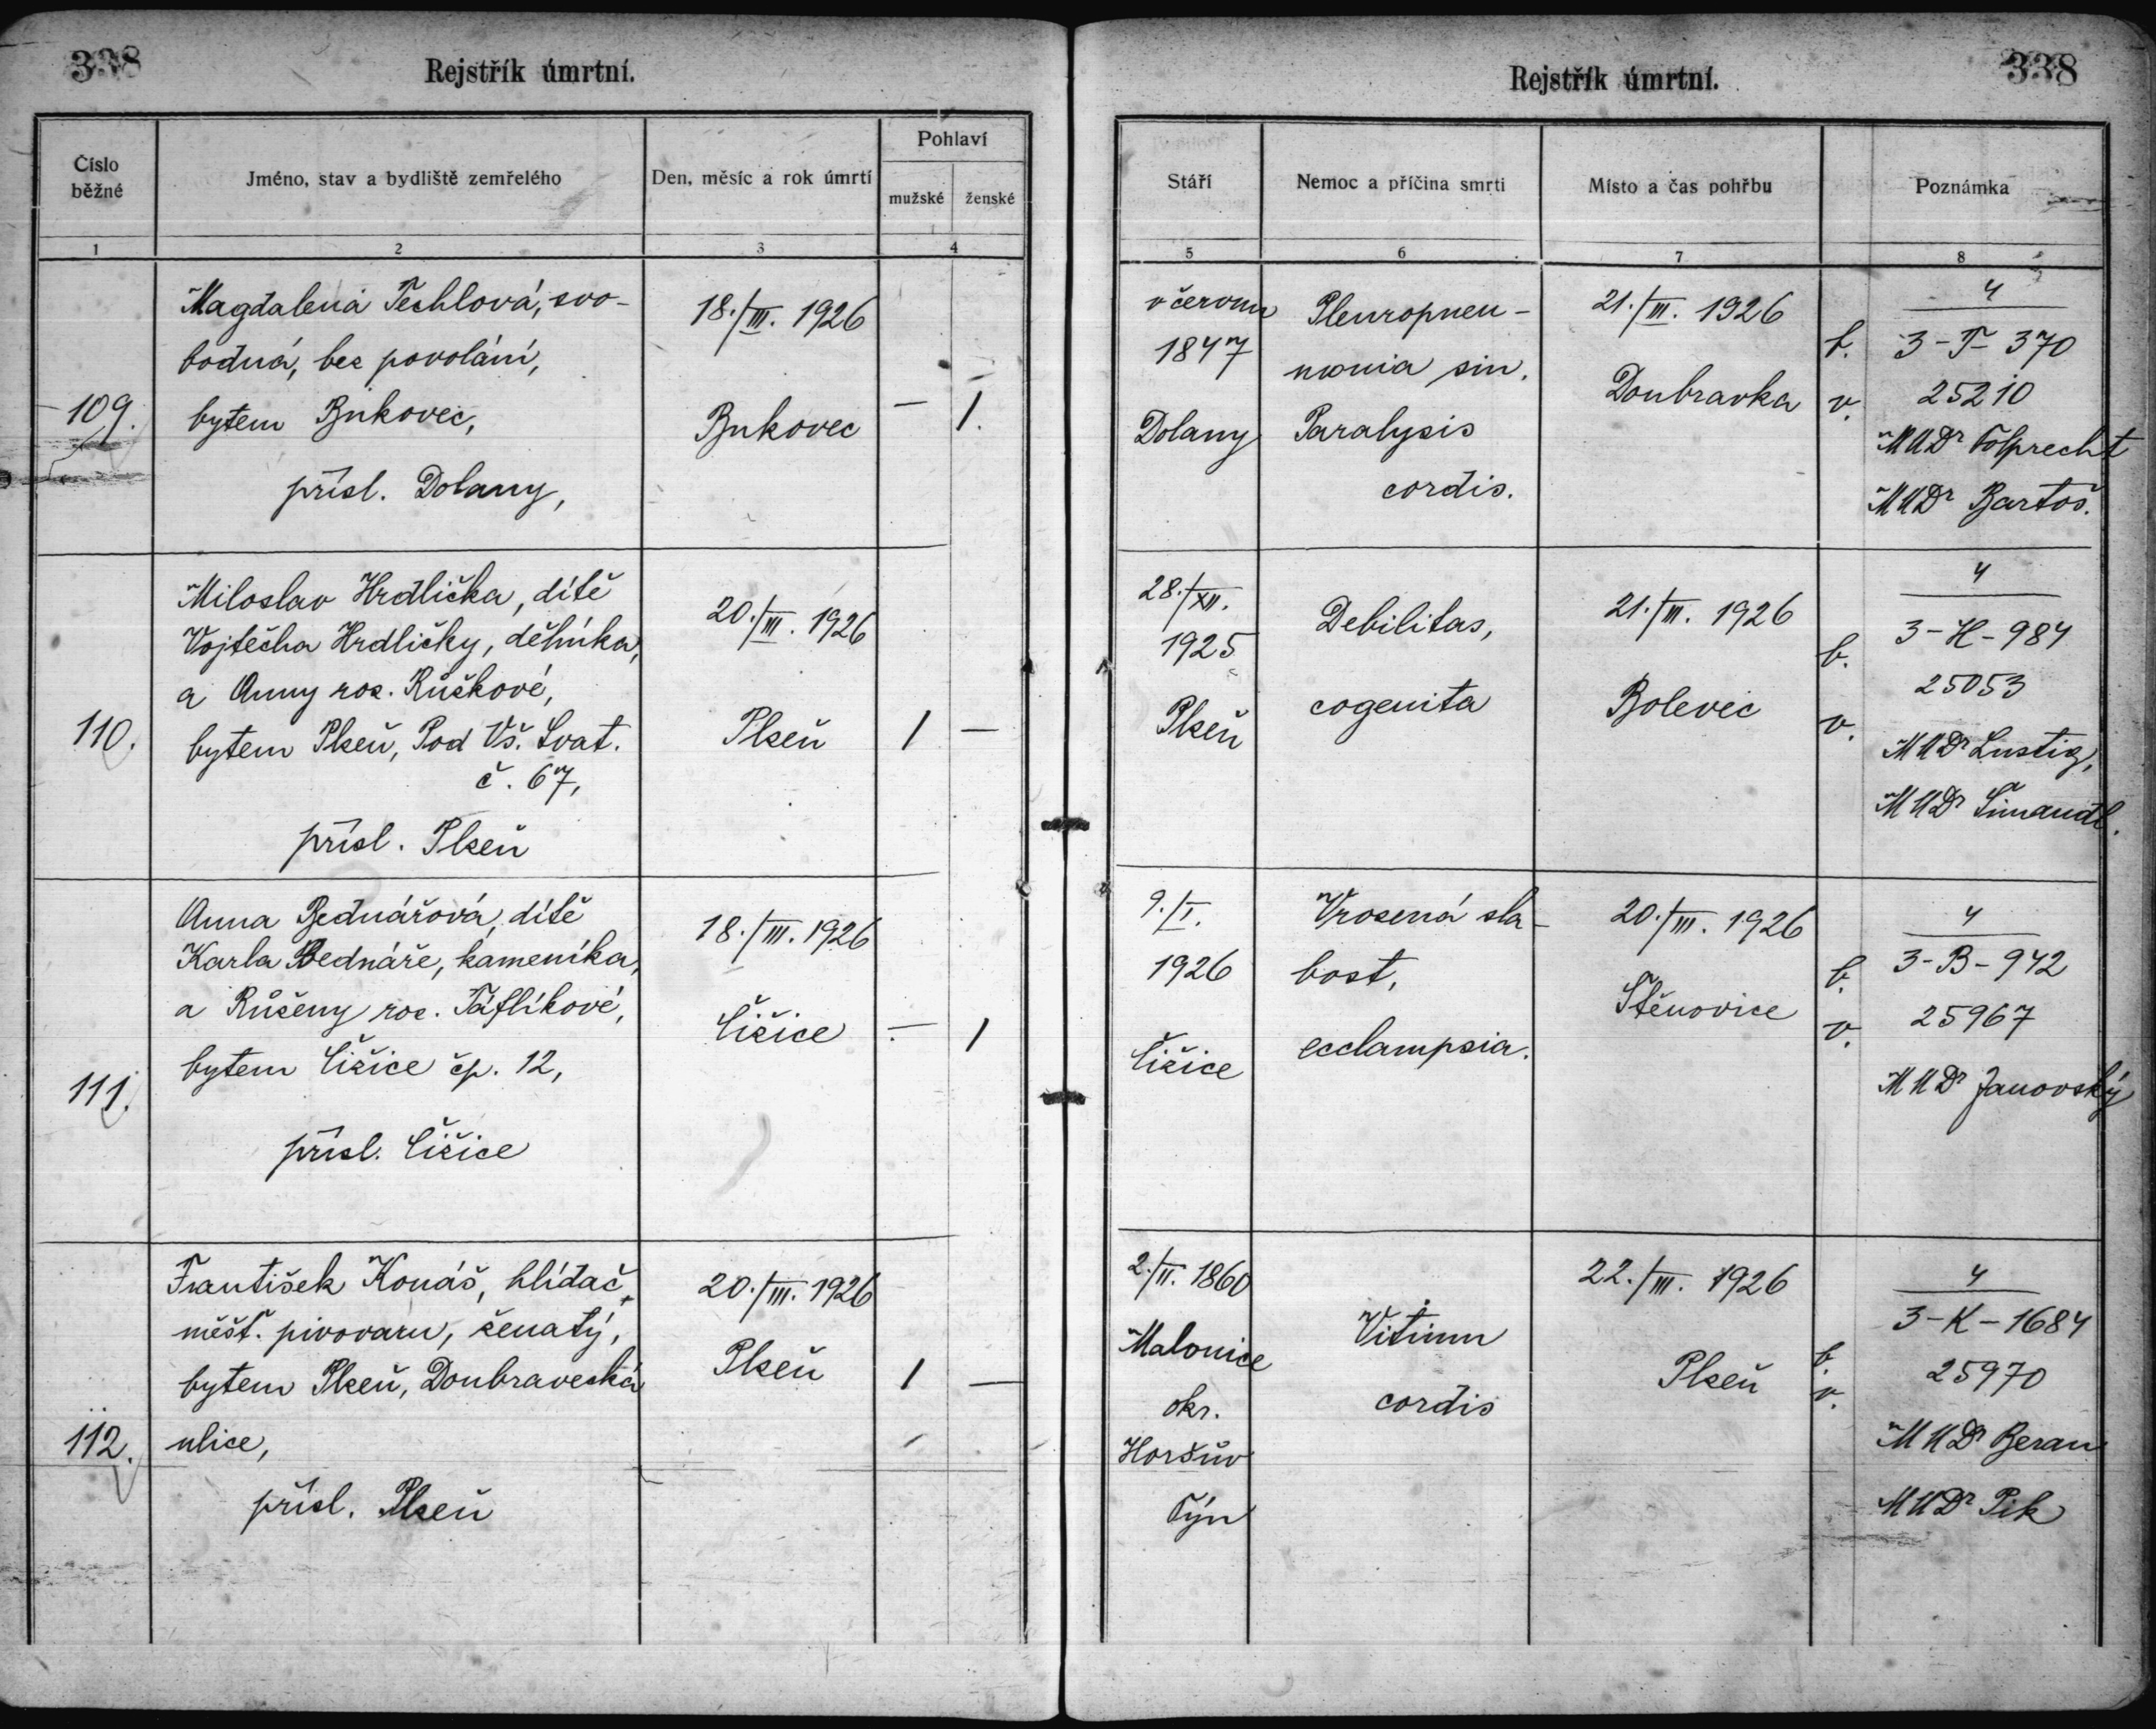 338
Rejstřík úmrtní.
Číslo běžné
Jméno, stav a bydliště zemřelého
Den, měsíc a rok úmrtí
Pohlaví
mužské
ženské
1
2
3
4
109.
Magdalena Techlová, svo-
bodná, bez povolání,
bytem Bukovec,
přísl. Dolany,
18./III. 1926
Bukovec
—
1.
110.
Miloslav Hrdlička, dítě
Vojtěcha Hrdličky, dělníka,
a Anny roz. Růžkové,
bytem Plzeň, Pod Vš. Svat.
č. 67,
přísl. Plzeň
20./III. 1926
Plzeň
1
—
111.
Anna Bednářová, dítě
Karla Bednáře, kameníka,
a Růženy roz. Táflíkové,
bytem Čižice čp. 12,
přísl. Čižice
18./III. 1926
Čižice
—
1
112.
František Konáš, hlídač
měšť. pivovaru, ženatý,
bytem Plzeň, Doubravecká
ulice,
přísl. Plzeň
20./III. 1926
Plzeň
1
—
338
Rejstřík úmrtní.
Stáří
Nemoc a příčina smrti
Místo a čas pohřbu
Poznámka
5
6
7
8
v červnu
1847
Dolany
Pleuropneu-
monia sin.
Paralysis
cordis.
21./III. 1926
Doubravka
b.
v.
4
3-T-370
25210
MUDr Folprecht
MUDr Bartoš.
28./XII.
1925
Plzeň
Debilitas,
cogenita
21./III. 1926
Bolevec
b.
v.
4
3-H-984
25053
MUDr Lustig,
MUDr Šimandl.
9./I.
1926
Čižice
Vrozená sla-
bost,
ecclampsia.
20./III. 1926
Štěnovice
b.
v.
4
3-B-942
25967
MUDr Janovský
2./II. 1860
Malonice
okr.
Horšův
Týn
Vitium
cordis
22./III. 1926
Plzeň
b.
v.
4
3-K-1684
25970
MUDr Beran
MUDr Pik